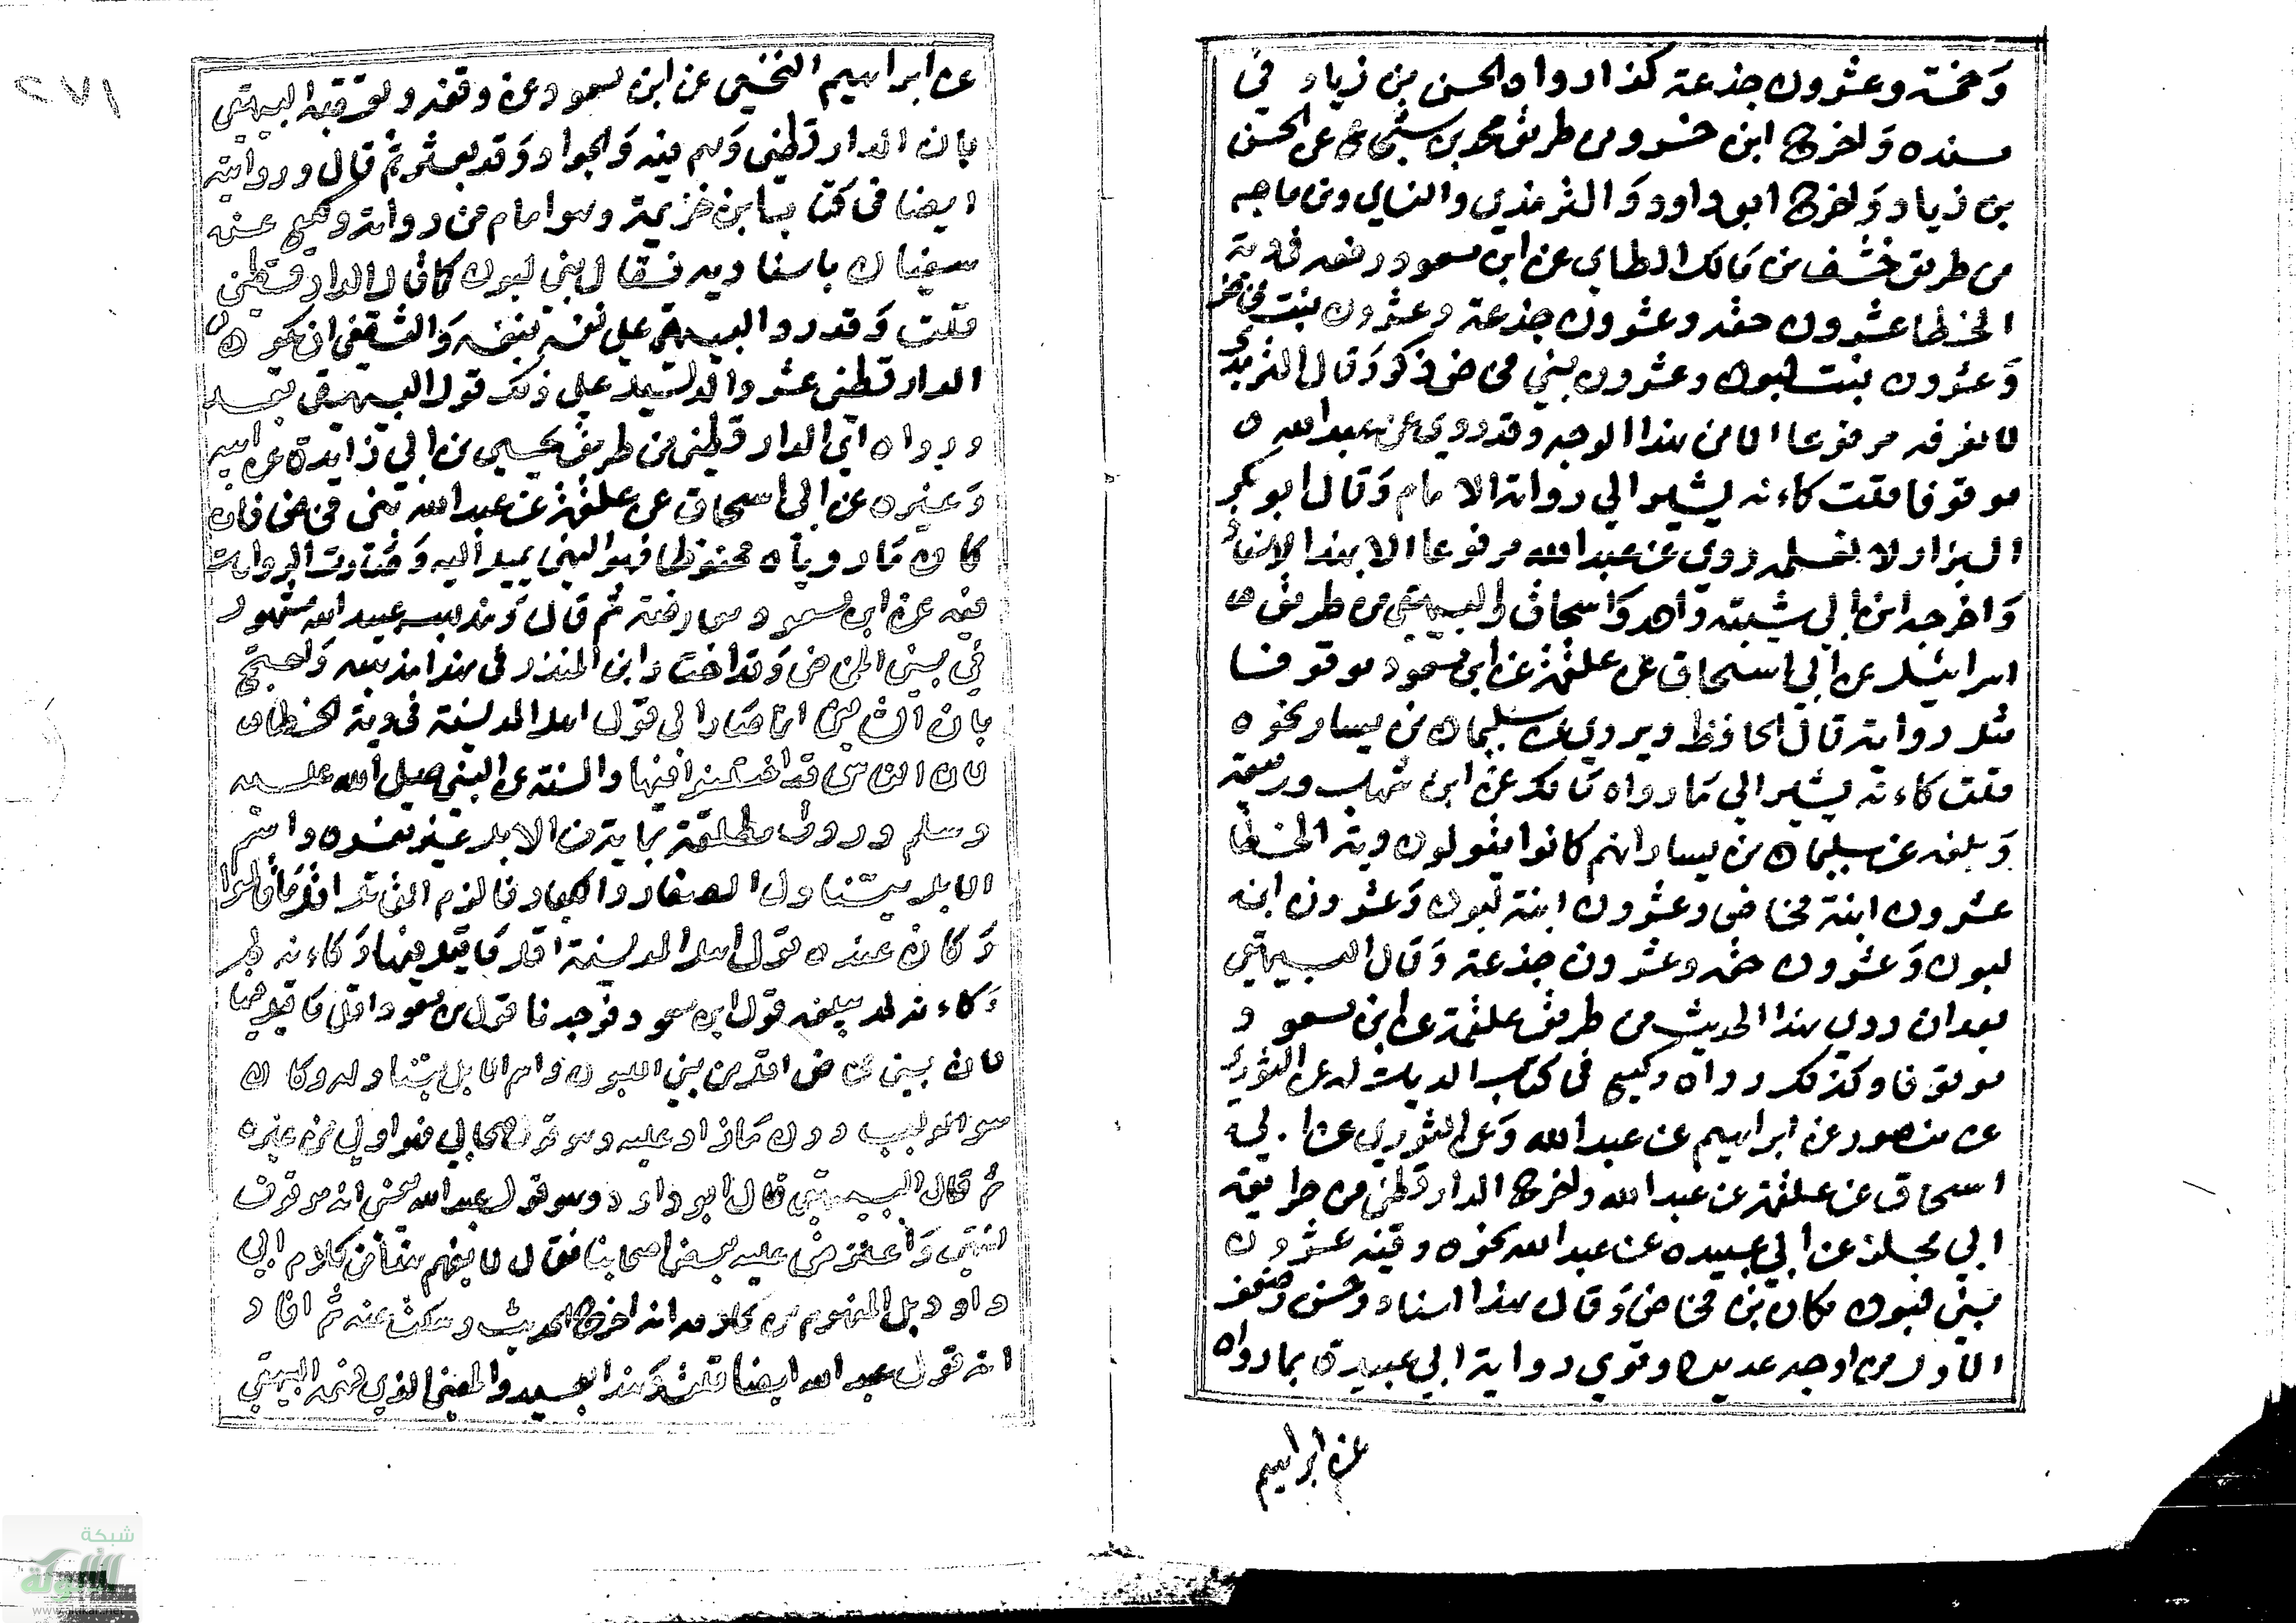 وخمسة وعشرون جذعة كذا رواه الحسن بن زياد في
مسنده واخرج ابن خسرو من طريق محمد بن شجاع عن الحسن
بن زياد واخرج ابو داود والترمذي والنساي وبن ماجه
من طريق خشف بن مالك الطاي عن ابن مسعود رفعه في دية
الخطا عشرون حقه وعشرون جذعة وعشرون بنت مخاض
وعشرون بنت لبون وعشرون بني مخاض ذكر وقال الترمذي
لا نعرفه مرفوعا الا من هذا الوجه وقد روي عن عبد الله
موقوفا قلت كاءنه يشير الي رواية الامام وقال ابو بكر
البزار لا نعلمه روي عن عبد الله مرفوعا الا بهذا الاسناد
واخرجه ابن ابي شيبته واحمد واسحاق والبيهقي من طريق
اسرائيل عن ابي اسحاق عن علقمة عن ابن مسعود موقوفا
مثل رواية قال الحافظ ويروي عن سليمان بن يسار نحوه
قلت كاءنه يشير الي ما رواه مالك عن ابن شهاب وربيعة
وبلغه عن سليمان بن يسار انهم كانوا يقولون دية الخطا
عشرون ابنة مخاض وعشرون ابنة لبون وعشرون ابن
لبون وعشرون حقه وعشرون جذعة وقال البيهقي
بعد ان روي هذا الحديث من طريق علقمة عن ابن مسعود
موقوفا وكذلك رواه وكيع في كتاب الديات له عن الثوري
عن منصور عن ابراهيم عن عبد الله وعن الثوري عن ابي
اسحاق عن علقمة عن عبد الله واخرج الدارقطني من طريق
ابي مجلز عن ابي عبيده عن عبد الله نحوه وفيه عشرون
بني لبون مكان بن مخاض وقال هذا اسناد حسن وضعف
الاول من اوجه عديدة وقوي رواية ابي عبيدة بما رواه
عن ابراهيم
٢٧١
عن ابراهيم النخعي عن ابن مسعود عن وقفه وتعقبه البيهقي
بان الدارقطني وهم فيه والجواد وقد يعثر ثم قال ورواية
ايضا في كتاب ابن خزيمة وهو امام من رواية وكيع عن
سفيان باسناديه فقال بني لبون كما قال الدارقطني
قلت وقد رد البيهقي علي نفسه بنفسه وانتفي ان يكون
الدارقطني عثر والدليل علي ذلك قول البيهقي بعد
ورواه اي الدارقطني من طريق يحيي بن ابي زايدة عن ابيه
وغيره عن ابي اسحاق عن علقمة عن عبد الله بني مخاض فان
كان ما روياه محفوظا فهو الذي نميل اليه وصارت الروايات
فيه عن ابن مسعود متعارضة ثم قال ومذهب عبد الله مشهور
في بني المخاض وقد اختار ابن المنذر في هذا مذهبه واحتج
بان الشافعي انما صار الي قول اهل المدينة في دية الخطا
لان الناس قد اختلفوا فيها والسنة عن النبي صلي الله عليه
وسلم وردت مطلقة بماية من الابل غير مفسره واسم
الابل يتناول الصغار والكبار فالزم القاتل اقل ما قالوا
وكان عنده قول اهل المدينة اقل ما قيل فيها وكاءنه لم
وكاءنه لم يبلغه قول ابن مسعود فوجدنا قول بن مسعود اقل ما قيل فيها
لان بني مخاض اقل من بني اللبون واسم الابل يتناوله وكان
هو الواجب دون ما زاد عليه وهو قول صحابي فهو اولي من غيره
ثم قال البيهقي قال ابو داود وهو قول عبد الله يعني انه موقوف
انتهي واعترض عليه بعض اصحابنا فقال لا يفهم هذا من كلام ابي
داود بل المفهوم من كلامه انه اخرج الحديث وسكت عنه ثم افاد
انه قول عبد الله ايضا قلت وهذا بعيد والمعني الذي فهمه البيهقي
شبكة
الألوكة
www.alukah.net